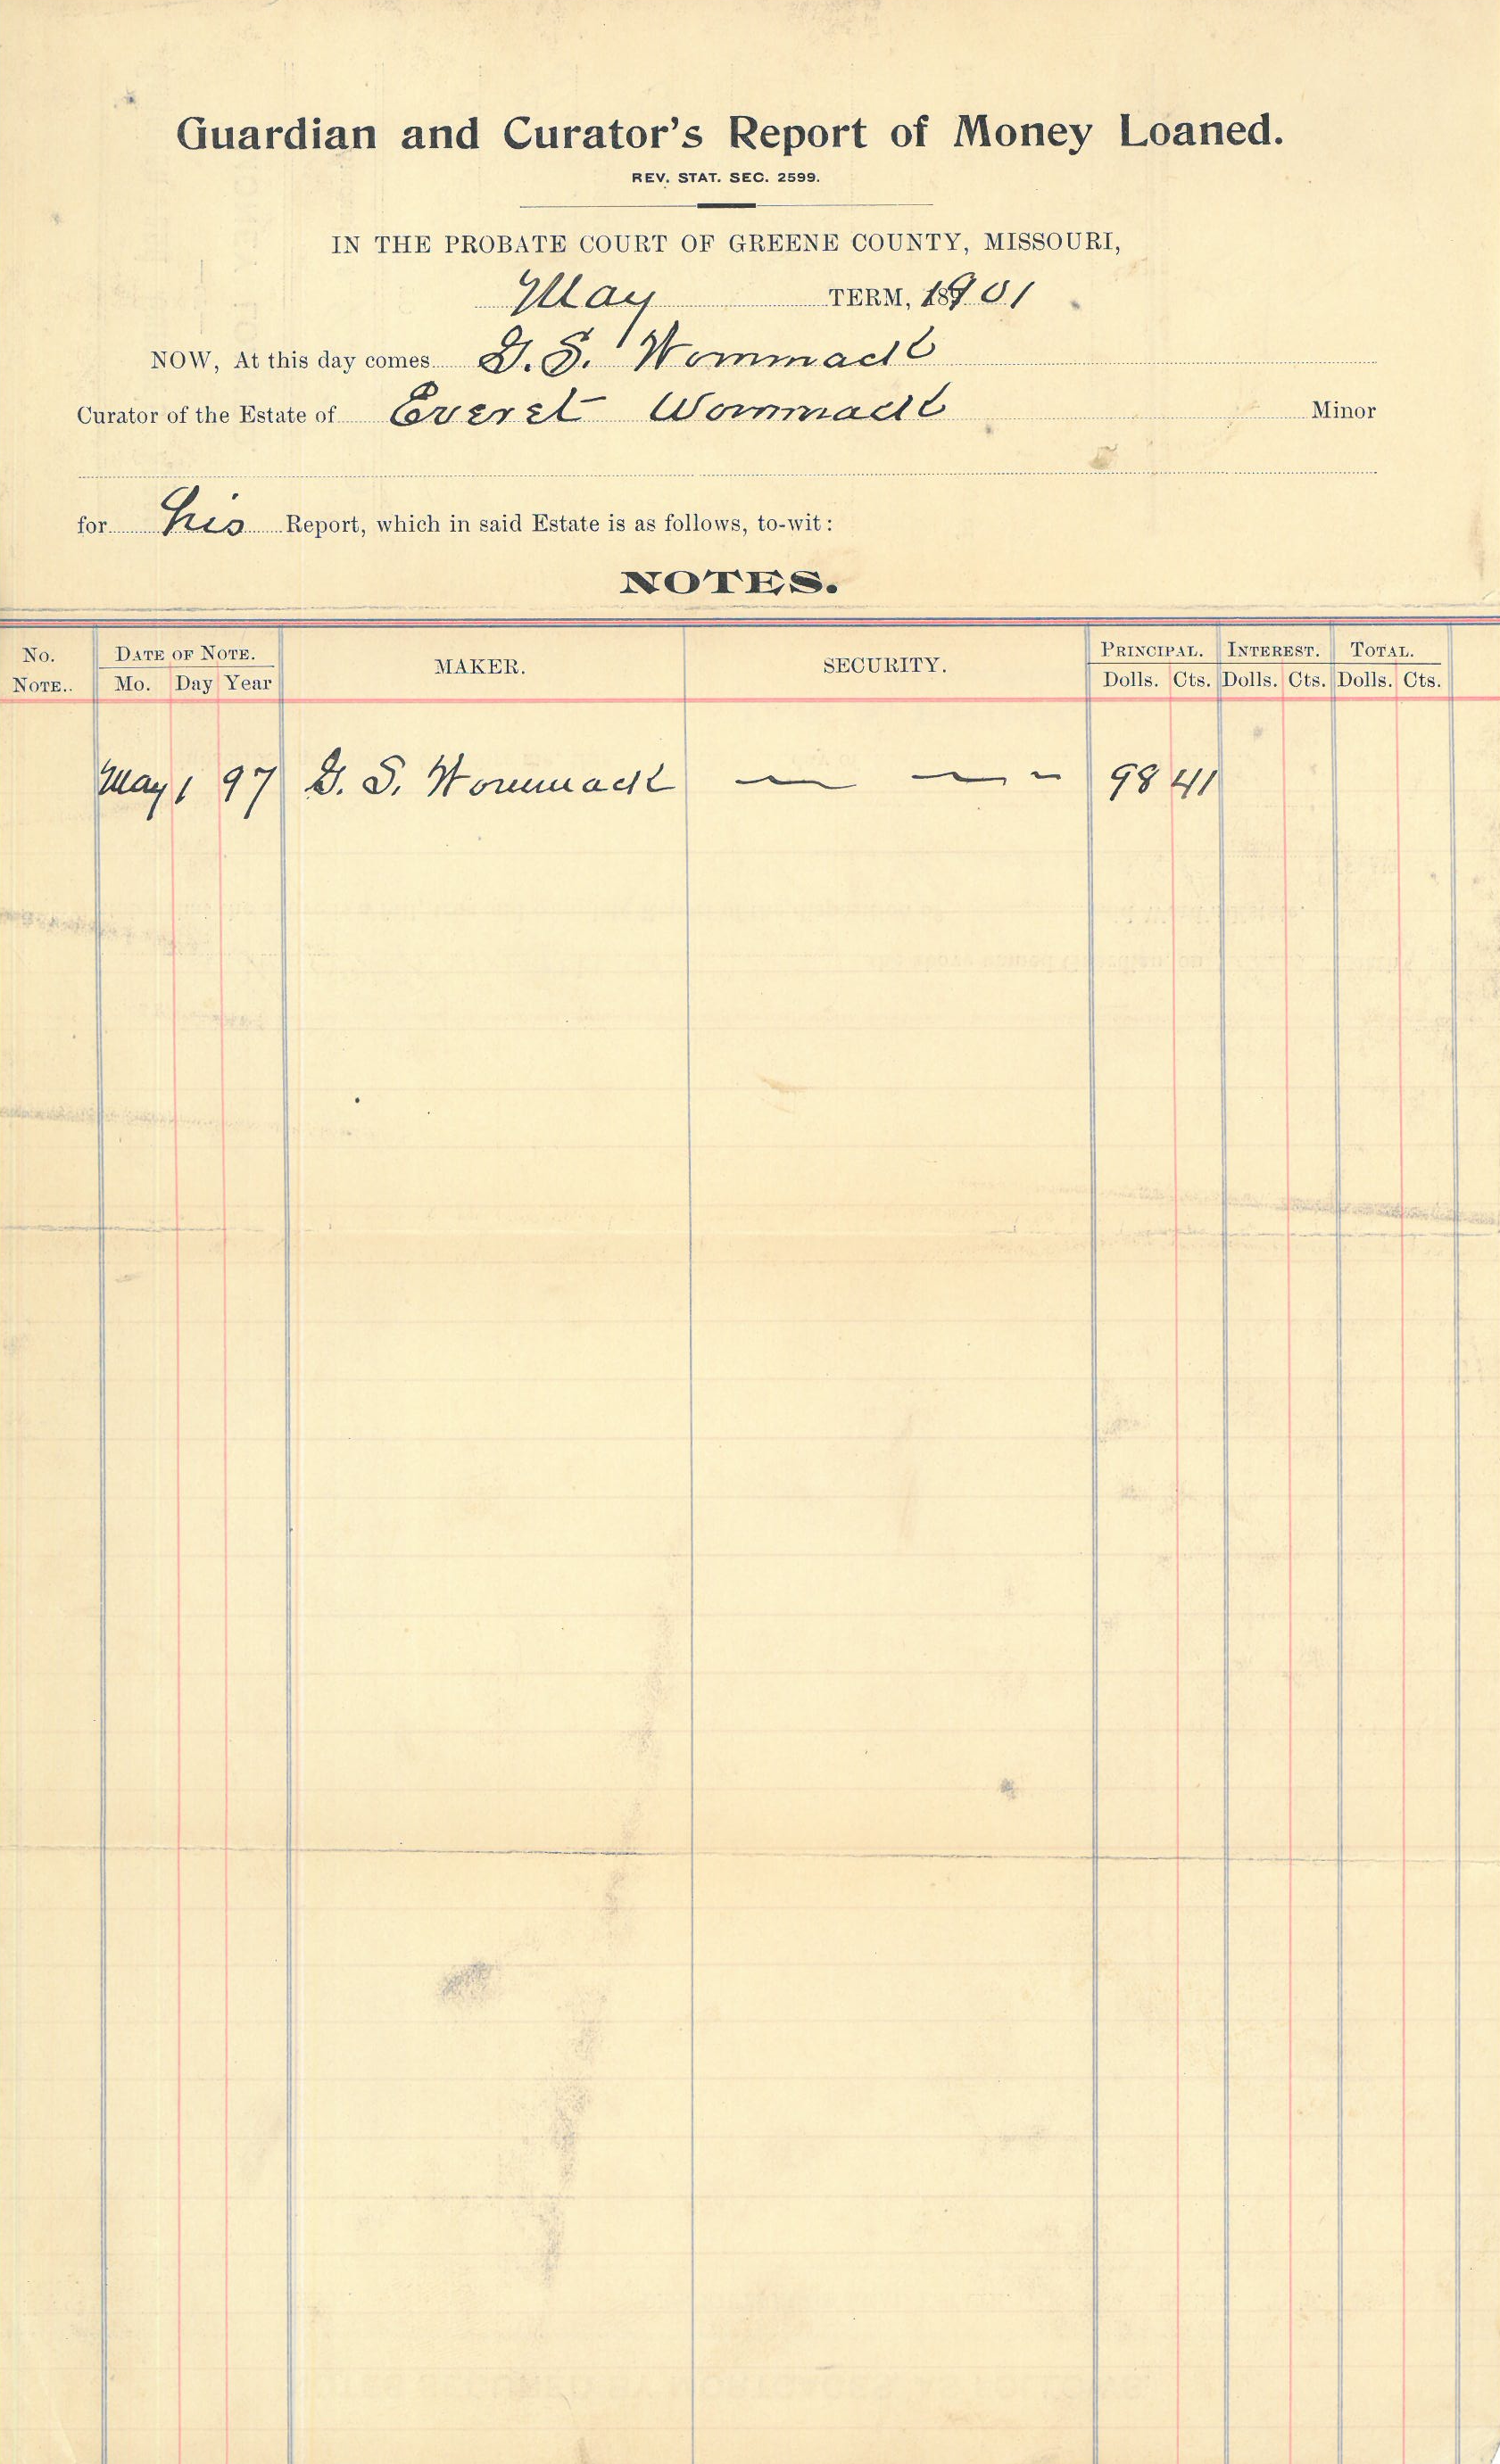 Guardian and Curator's Report of Money Loaned.
REV. STAT. SEC. 2599.
IN THE PROBATE COURT OF GREENE COUNTY, MISSOURI,
May TERM, 1901
NOW, At this day comes G. S. Wommack
Curator of the Estate of Everet Wommack Minor
for his Report, which in said Estate is as follows, to-wit:
NOTES.
No. NOTE.. DATE OF NOTE. Mo. Day Year MAKER. SECURITY. PRINCIPAL. Dolls. Cts. INTEREST. Dolls. Cts. TOTAL. Dolls. Cts.
May 1 97 G. S. Wommack — — - 98 41